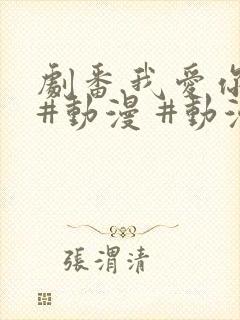 劇番我愛你
#動漫 #動漫
張渭清